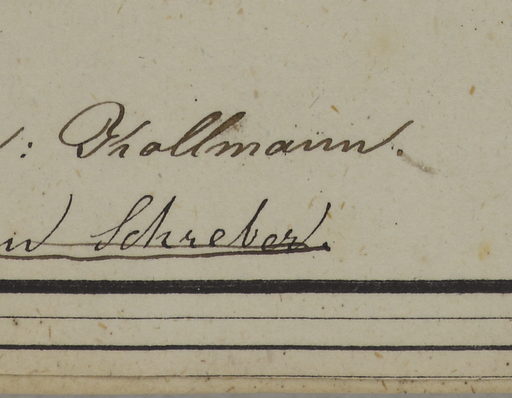 : Kollmann.
Schreber.